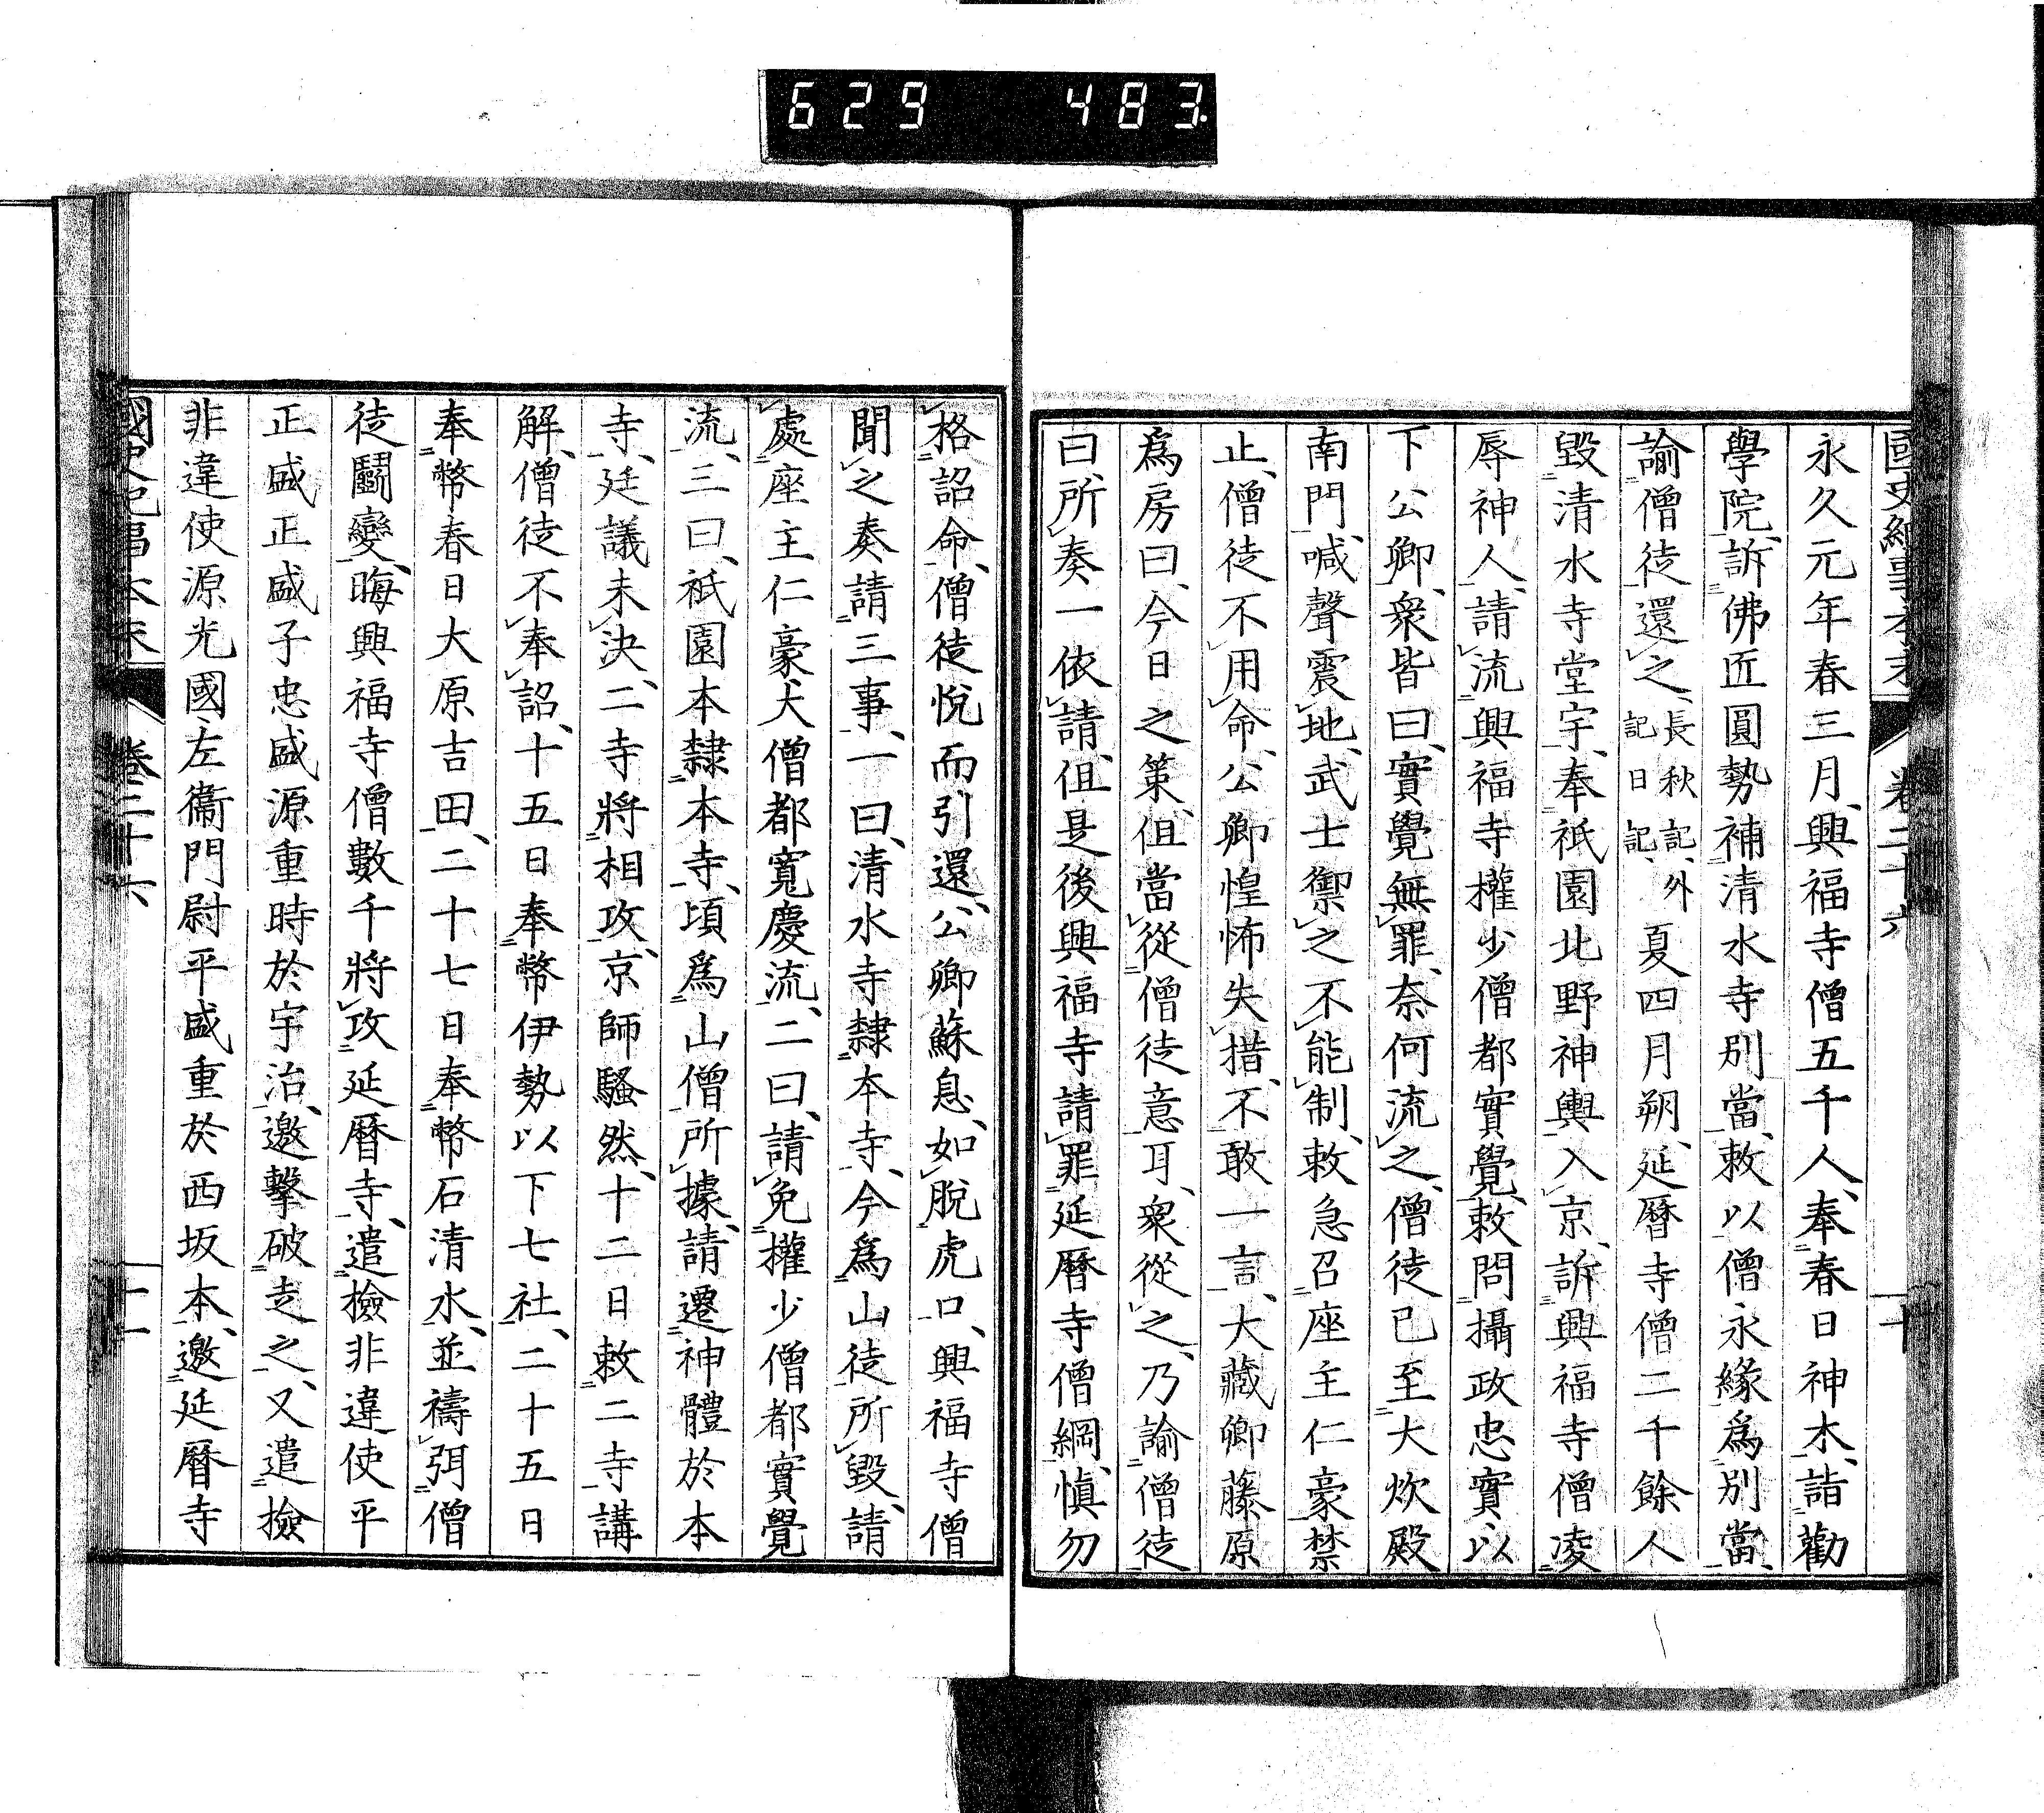 629 483
國史紀事本末 卷二十六 十
永久元年春三月、興福寺僧五千人、奉春日神木、詣勸
學院、訴佛匠圓勢補清水寺別當、敕以僧永緣爲別當、
諭僧徒還之、長秋記、外記日記、夏四月朔、延曆寺僧二千餘人
毀清水寺堂宇、奉祇園北野神輿入京、訴興福寺僧凌
辱神人、請流興福寺權少僧都實覺、敕問攝政忠實以
下公卿、衆皆曰、實覺無罪、奈何流之、僧徒已至大炊殿
南門、喊聲震地、武士禦之不能制、敕急召座主仁豪禁
止、僧徒不用命、公卿惶怖失措、不敢一言、大藏卿藤原
爲房曰、今日之策、但當從僧徒意耳、衆從之、乃諭僧徒
曰、所奏一依請、但是後興福寺請罪延曆寺僧綱、愼勿
格詔命、僧徒悅而引還、公卿蘇息、如脫虎口、興福寺僧
聞之奏請三事、一曰、清水寺隸本寺、今爲山徒所毀、請
處座主仁豪大僧都寬慶流、二曰、請免權少僧都實覺
流、三曰、祇園本隸本寺、頃爲山僧所據、請遷神體於本
寺、廷議未決、二寺將相攻、京師騷然、十二日敕二寺講
解、僧徒不奉詔、十五日奉幣伊勢以下七社、二十五日
奉幣春日大原吉田、二十七日奉幣石清水、並禱弭僧
徒鬭變、晦興福寺僧數千將攻延曆寺、遣檢非違使平
正盛正盛子忠盛源重時於宇治、邀擊破走之、又遣撿
非違使源光國左衞門尉平盛重於西坂本、邀延曆寺
國史紀事本末 卷二十六 十一